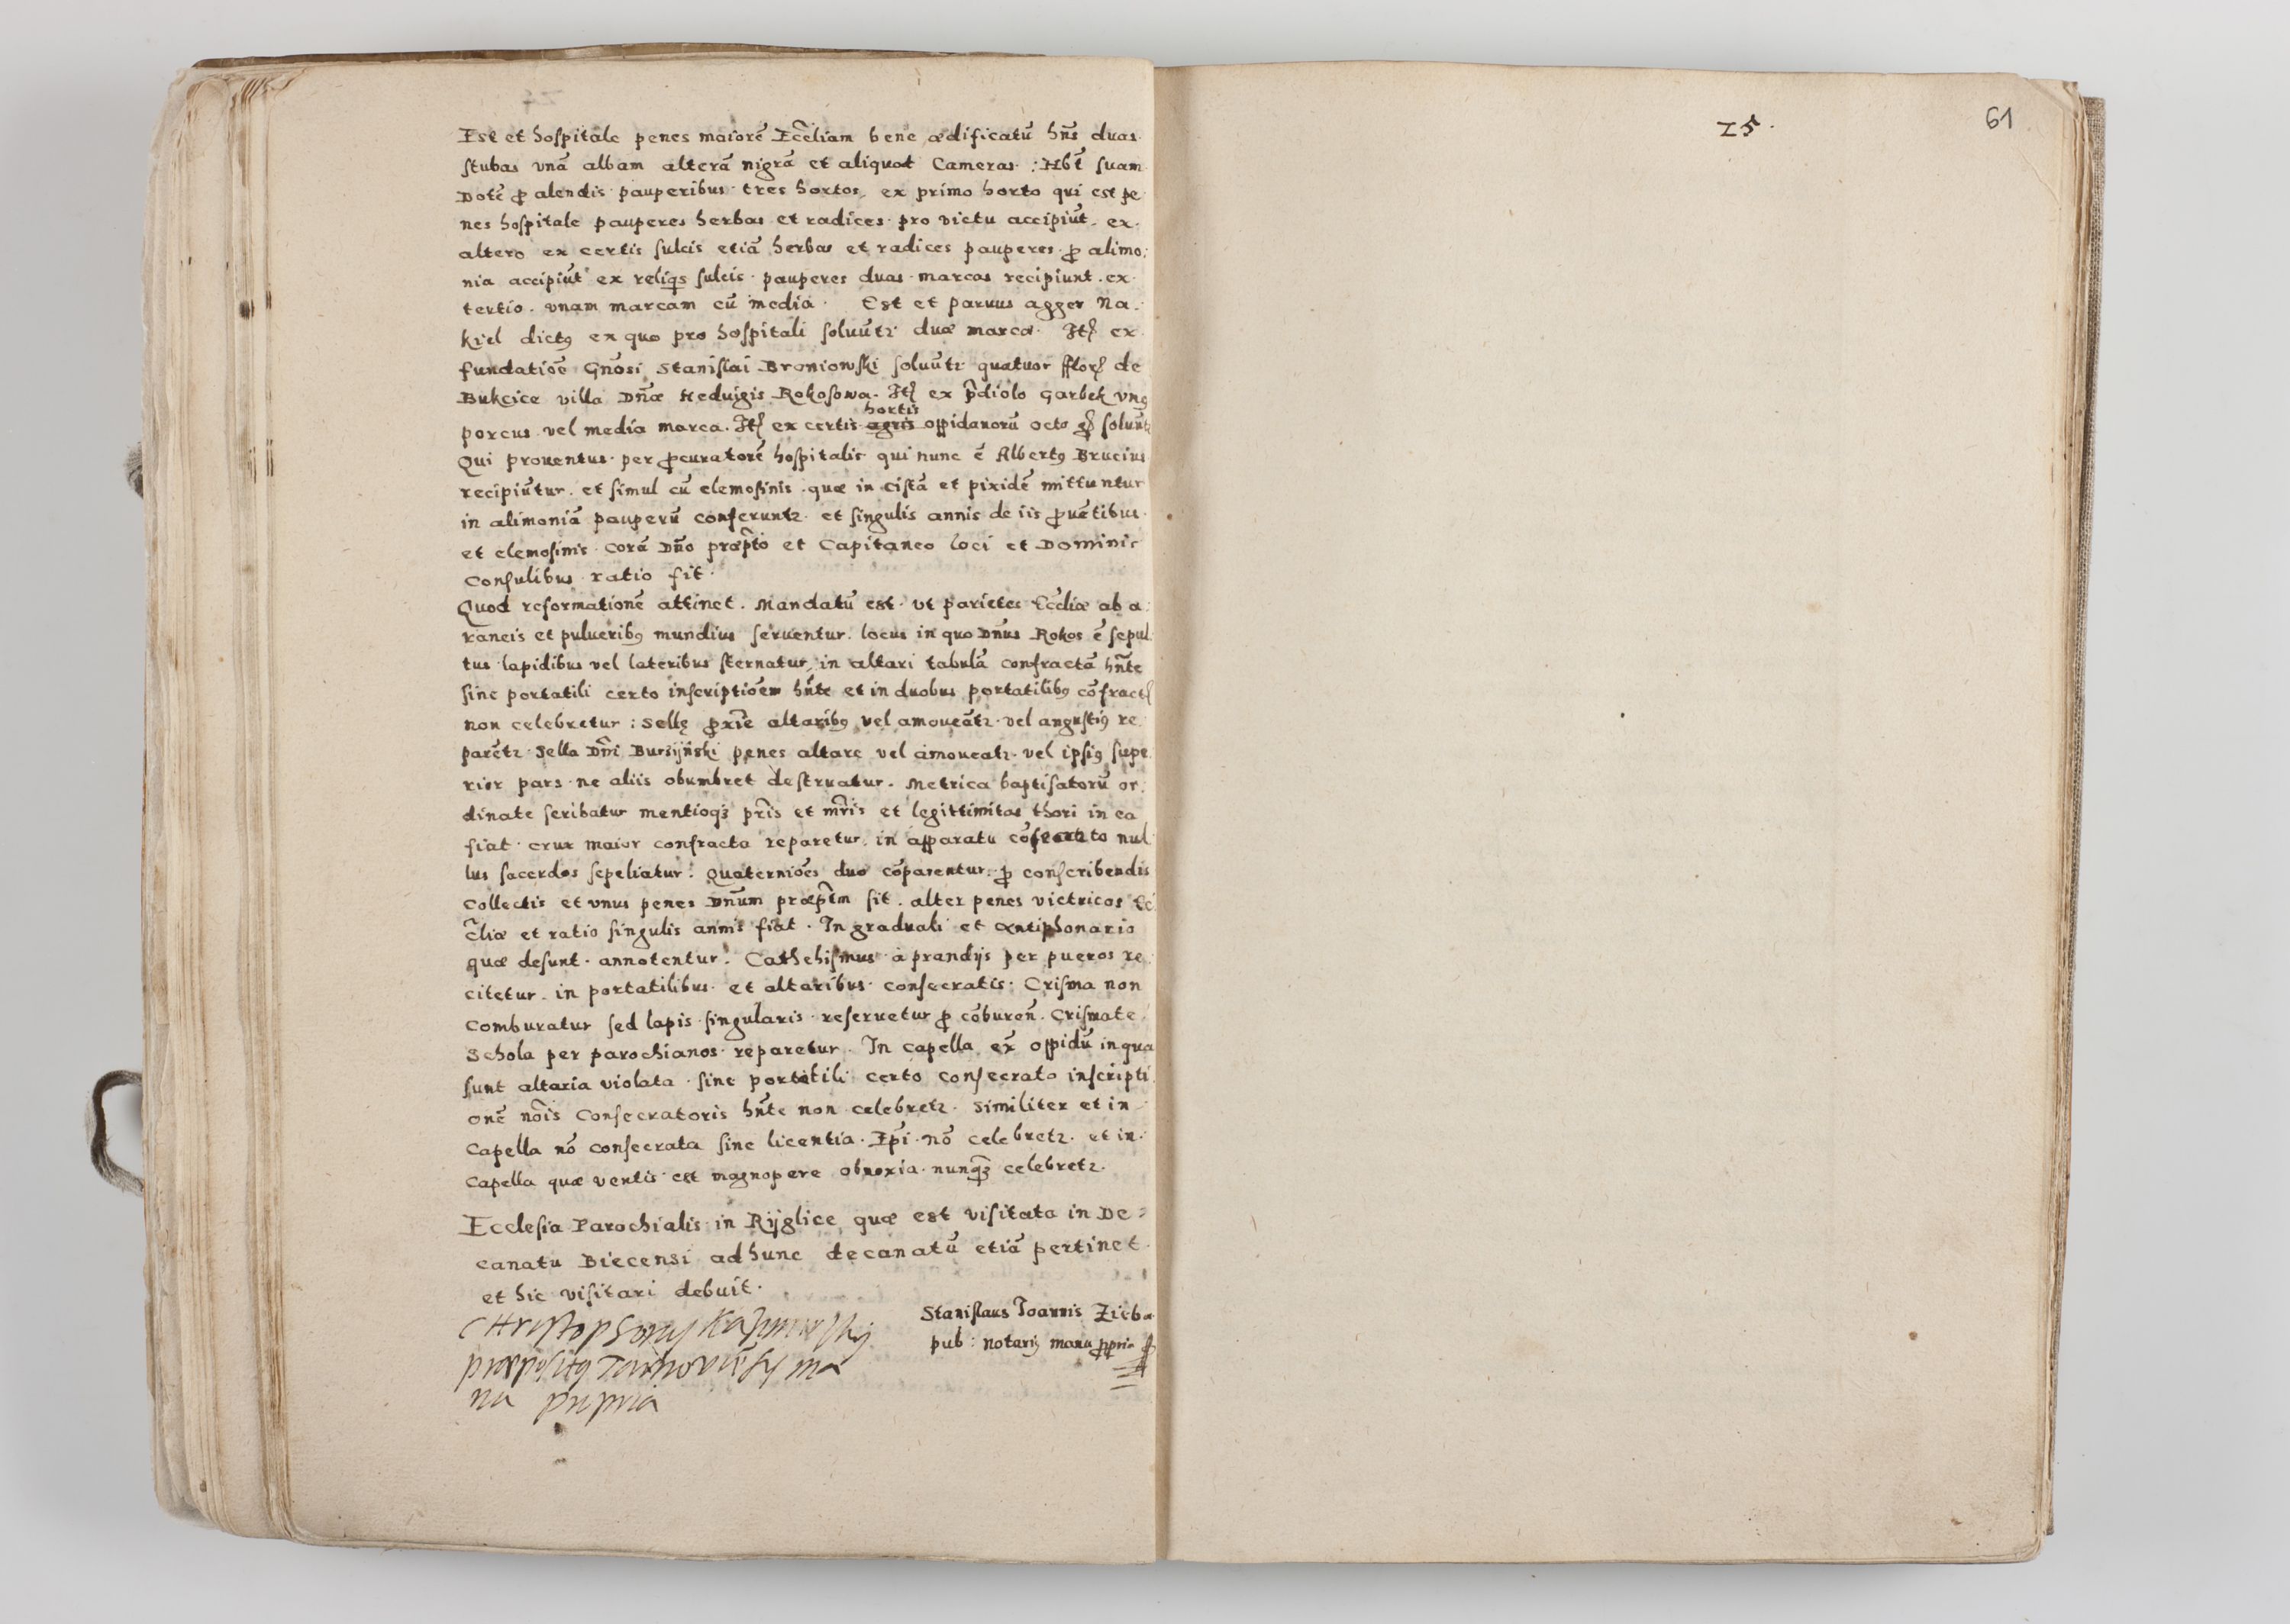 Est et hospitale penes maiorē Eccliam bene ædificatū hñs duas
stubas vnā albam alterā nigrā et aliquot Cameras. Hbt suam
Dotē ꝓ alendis pauperibus tres hortos, ex primo horto qui est pe
nes hospitale pauperes herbas et radices pro victu accipiūt. ex
altero ex certis sulcis etiā herbas et radices pauperes ꝓ alimo:
nia accipiūt ex reliqs sulcis pauperes duas marcas recipiunt. ex
tertio. vnam marcam cū media. Est et paruus agger Na:
kiel dictꝰ ex quo pro hospitali soluūtr duæ marcæ. Itē ex
fundatiōe Gñosi Stanislai Broniowski soluūtr quatuor fflor de
Bukcice villa Dñæ Heduigis Rokosowa. Itē ex p̄diolo Garbek vnꝰ
hortis
porcus vel media marca. Itē ex certis agris oppidanorū octo gr soluūtr
Qui prouentus per ꝓcuratorē hospitalis qui nunc ē Albertꝰ Brucius
recipiūtur. et simul cū elemosinis quæ in cistā et pixidē mittuntur
in alimoniā pauperū conferuntr. et singulis annis de iis ꝓuētibus
et elemosinis corā Dño præpto et Capitaneo loci et Dominis
Consulibus ratio fit.
Quod reformationē attinet. Mandatū est. vt parietes Eccliæ ab a:
raneis et pulueribꝰ mundius seruentur. locus in quo Dñus Rokos ē sepul
tus lapidibus vel lateribus sternatur, in altari tabulā confractā hñte
sine portatili certo inscriptiōem hñte et in duobus portatilibꝰ cōfractis
non celebretur: Sellę ꝓxie altaribꝰ vel amoueātr. vel angustiꝰ re
parētr. Sella Dñi Bursÿński penes altare vel amoueatr. vel ipsiꝰ supe
rior pars ne aliis obumbret destruatur. Metrica baptisatorū or:
dinate scribatur mentioqꝫ pr̄is et mr̄is et legittimitas thori in ea
fiat. crux maior confracta reparetur. in apparatu cōsecrato nul
lus sacerdos sepeliatur. Quaterniōes duo cōparentur. ꝓ conscribendis
Collectis et vnus penes Dñum præptm sit. alter penes victricos Ec
cliæ et ratio singulis annis fiat. In graduali et antiphonario
quæ desunt annotentur. Cathehismus a prandijs per pueros re
citetur. in portatilibus et altaribus consecratis. Crisma non
Comburatur sed lapis singularis reseruetur ꝓ cōburen̄. Crismate.
Schola per parochianos reparetur. In capella ex̄ oppidū in qua
sunt altaria violata sine portatili certo consecrato inscripti
onē nois Consecratoris hñte non celebretr. Similiter et in
Capella nō consecrata sine licentia Epi nō celebretr. et in
Capella quæ ventis est magnopere obnoxia nunqꝫ celebretr.
Ecclesia Parochialis in Rÿglice quæ est visitata in De=
canatu Biecensi ad hunc decanatū etiā pertinet
et hic visitari debuit.
Stanislaus Joannis Zięba
pub: notariꝰ manu ꝓpria
Christophorus Kasimirskij
præpositꝰ Tarnoviēsis ma
nu propria
25.
61